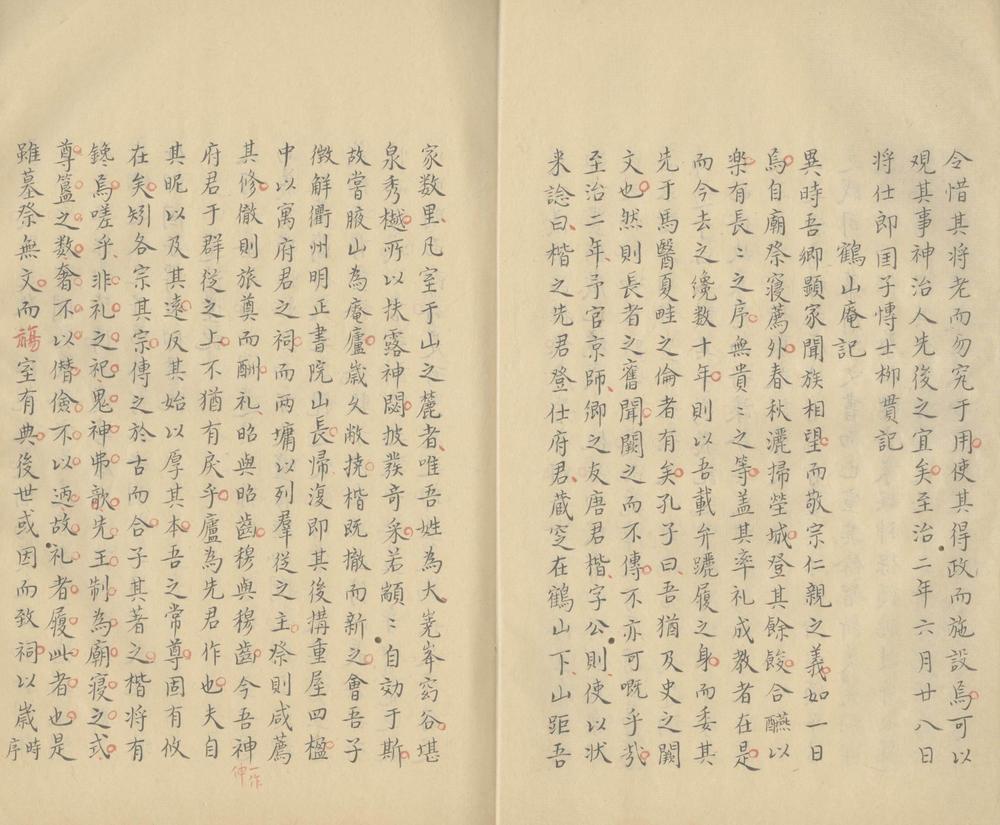 令惜其将老而勿究于用使其得政而施設焉可以
覌其事神治人先後之宜矣至治二年六月廿八日
将仕郎囯子愽士栁貫記
鶴山庵記
異時吾郷顕家聞族相望而敬宗仁親之義如一日
焉自廟祭寝薦外春秋灑掃塋城登其餘餕合醼以
楽有長〻之序無貴〻之等盖其率礼成教者在是
而今去之纔数十年則以吾載弁躧履之身而委其
先于馬醫夏畦之倫者有矣孔子曰吾猶及史之闕
文也然則長者之舊聞闕之而不傳不亦可嘅乎㦲
至治二年予官京師郷之友唐君楷字公則使以状
来諗曰楷之先君登仕府君蔵窆在鶴山下山距吾
家数里凡室于山之麓者唯吾姓為大嶤峯窈谷堪
泉秀樾所以扶露神閟披發奇采若顓〻自効于斯
故嘗腋山為庵廬歳久敝撓楷既撤而新之會吾子
徴觧衢州明正書院山長帰復即其後搆重屋四楹
中以寓府君之祠而两墉以列羣従之主祭則咸薦
其修徹則旅奠而酬礼昭與昭齒穆與穆齒今吾神
一作伸
府君于群従之上不猶有戻乎廬為先君作也夫自
其昵以及其遠反其始以厚其本吾之常尊固有攸
在矣矧各宗其宗傳之於古而合子其著之楷将有
鑱焉嗟乎非礼之祀鬼神弗歆先王制為廟寝之式
尊簋之数奢不以僣儉不以逎故礼者履此者也是
雖墓祭無文而旐室有典後世或因而致祠以歳時序